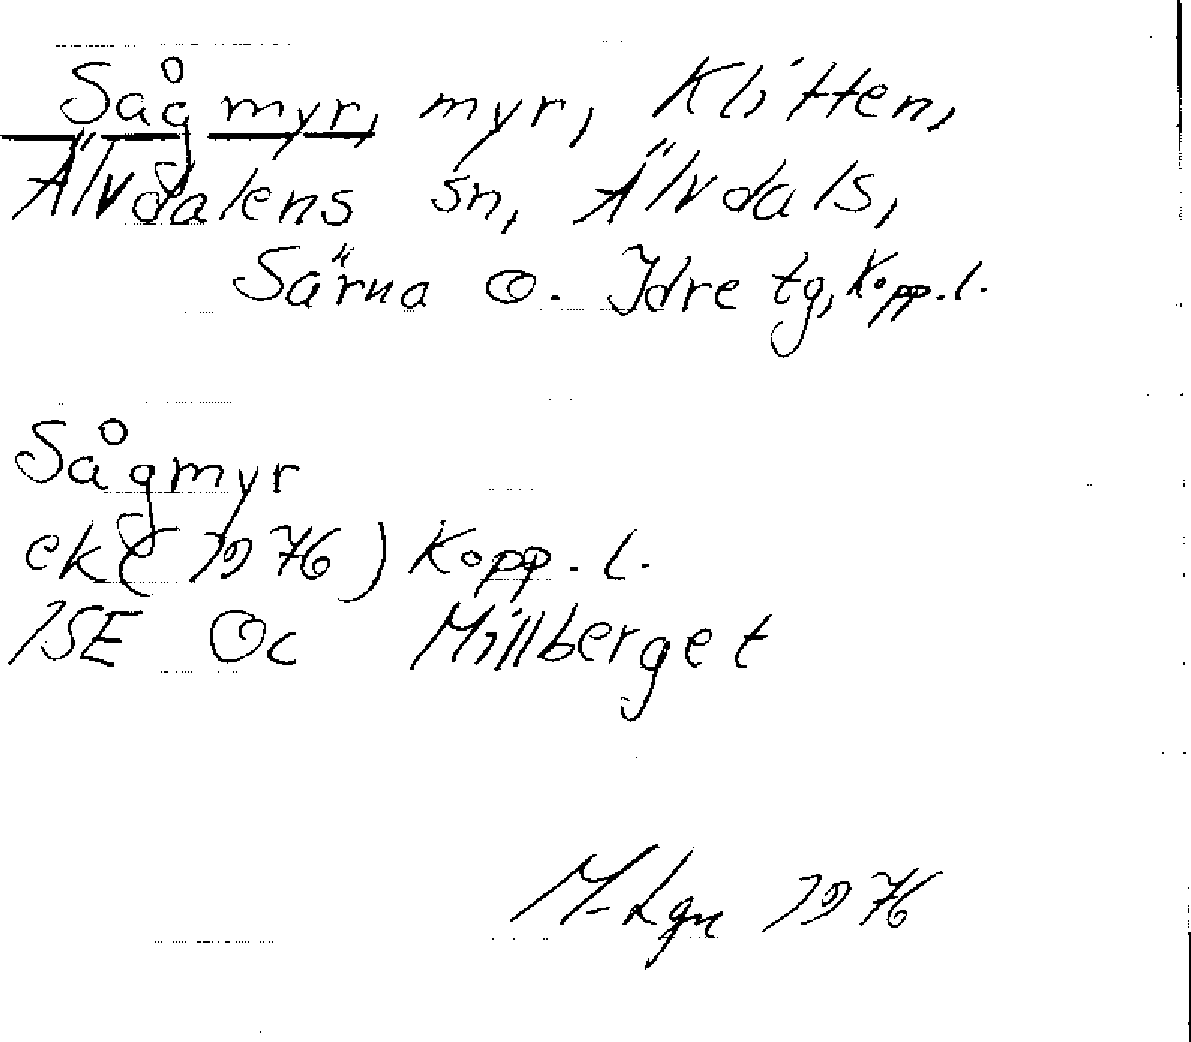 Sågmyr, myr, Klitten,
Älvdalens sn, Älvdals,
Särna o. Idre tg, Kopp.l.
Sågmyr
ek (1976) Kopp.l.
15E Oc Millberget
1976